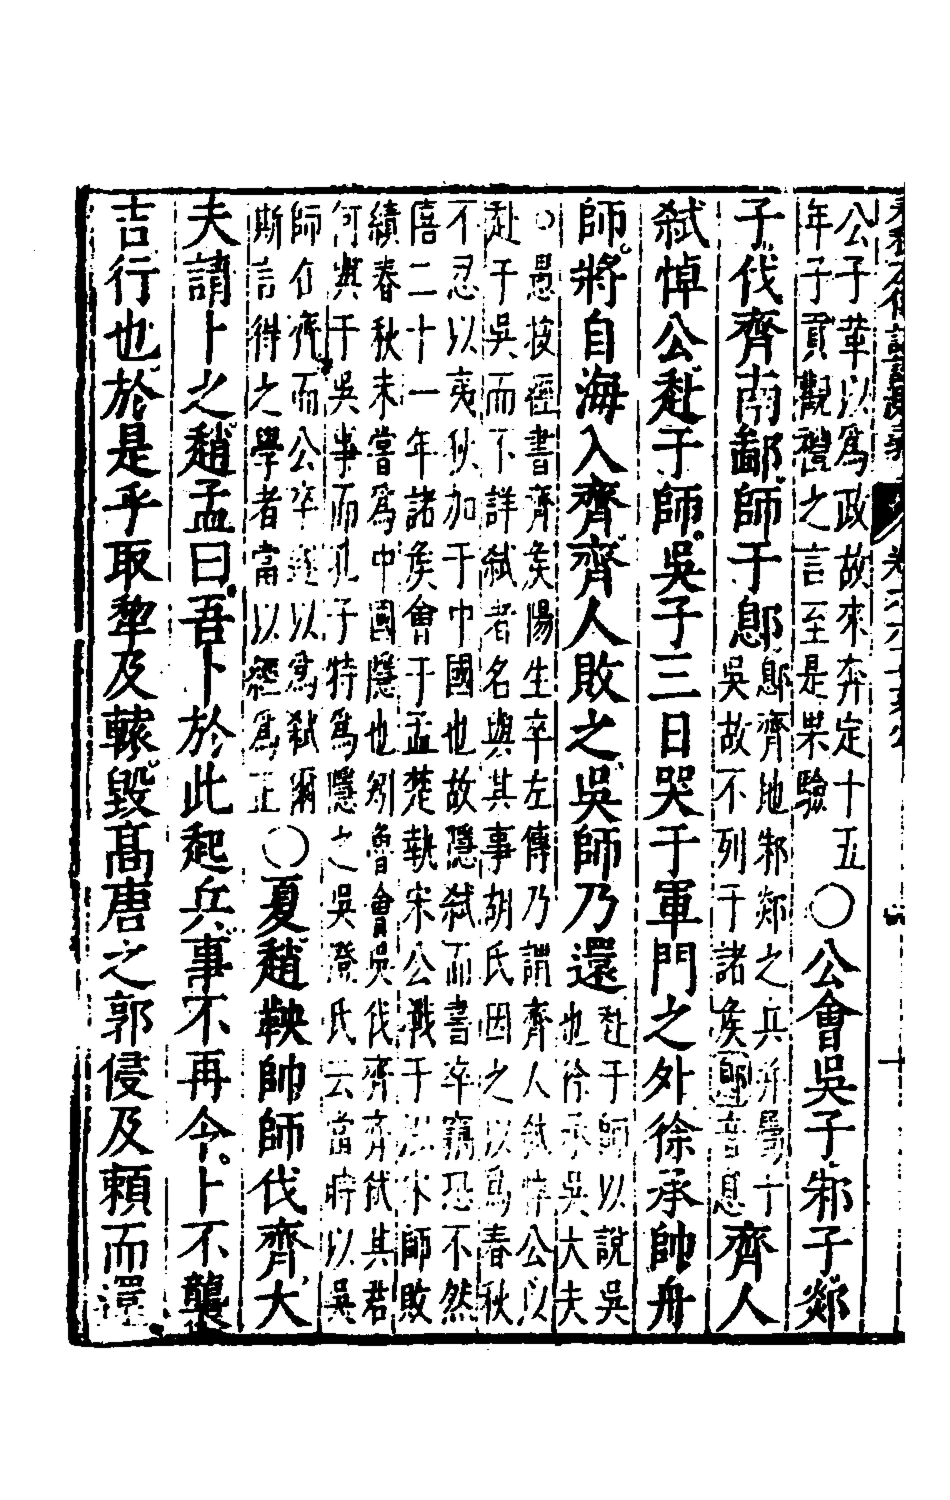 公子革以爲政故來奔定十五
年子貢觀禮之言至是果驗
○公會吳子邾子郯
子伐齊南鄙師于鄎
鄎齊地邾郯之兵并屬于
吳故不列于諸侯鄎音息
齊人
弑悼公赴于師吳子三日哭于軍門之外徐承帥舟
師將自海入齊齊人敗之吳師乃還
赴于師以說吳
也徐承吳大夫
○愚按經書齊侯陽生卒左傳乃謂齊人弑悼公以
赴于吳而不詳弑者名與其事胡氏因之以爲春秋
不忍以夷狄加于中國也故隱弑而書卒竊恐不然
僖二十一年諸侯會于盂楚執宋公戰于泓宋師敗
績春秋未嘗爲中國隱也矧魯會吳伐齊齊弑其君
何與于吳事而孔子特爲隱之吳澂氏云當時以吳
師在齊而公卒遂以爲弑爾
斯言得之學者當以經爲正
○夏趙鞅帥師伐齊大
夫請卜之趙孟曰吾卜於此起兵事不再令卜不襲
吉行也於是乎取犂及轅毀高唐之郭侵及賴而還